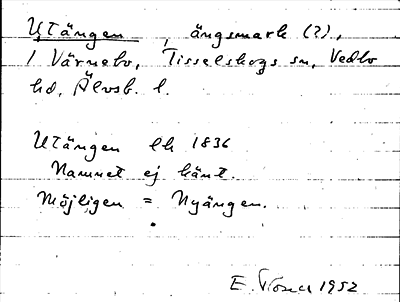 Utängen, ängsmark (?),
1 Värnebo, Tisselskogs sn, Vedbo
hd, Älvsb. l.
Utängen lh 1836
Namnet ej känt.
Möjligen = Nyängen.
E. 1952